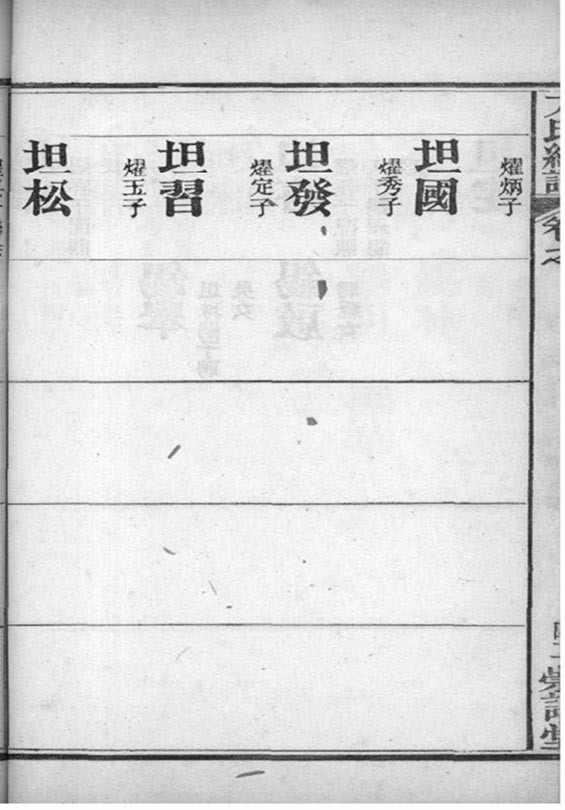 燿炳子
坦國
燿秀子
坦發
燿定子
坦習
燿玉子
坦松